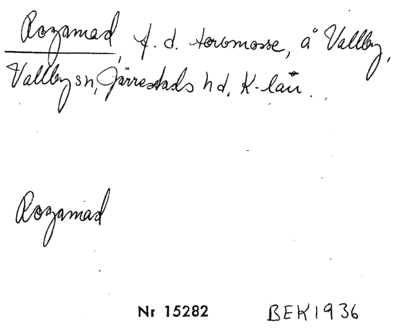 Rozamad, f. d. toromosse, å Vallby,
Vallby sn, Järrestads hd, K-län.
Rozamad
Nr 15282 BEK 1936